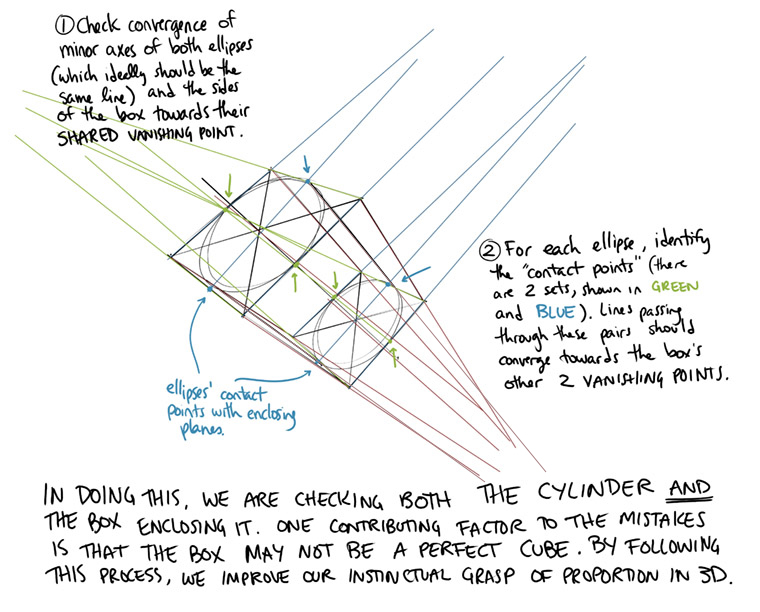 ① Check convergence of
minor axes of both ellipses
(which ideally should be the
same line) and the sides
of the box towards their
SHARED VANISHING POINT.
② For each ellipse, identify
the "contact points" (there
are 2 sets, shown in GREEN
and BLUE). Lines passing
through these pairs should
converge towards the box's
other 2 VANISHING POINTS.
ellipses' contact
points with enclosing
planes.
IN DOING THIS, WE ARE CHECKING BOTH THE CYLINDER AND
THE BOX ENCLOSING IT. ONE CONTRIBUTING FACTOR TO THE MISTAKES
IS THAT THE BOX MAY NOT BE A PERFECT CUBE. BY FOLLOWING
THIS PROCESS, WE IMPROVE OUR INSTINCTUAL GRASP OF PROPORTION IN 3D.